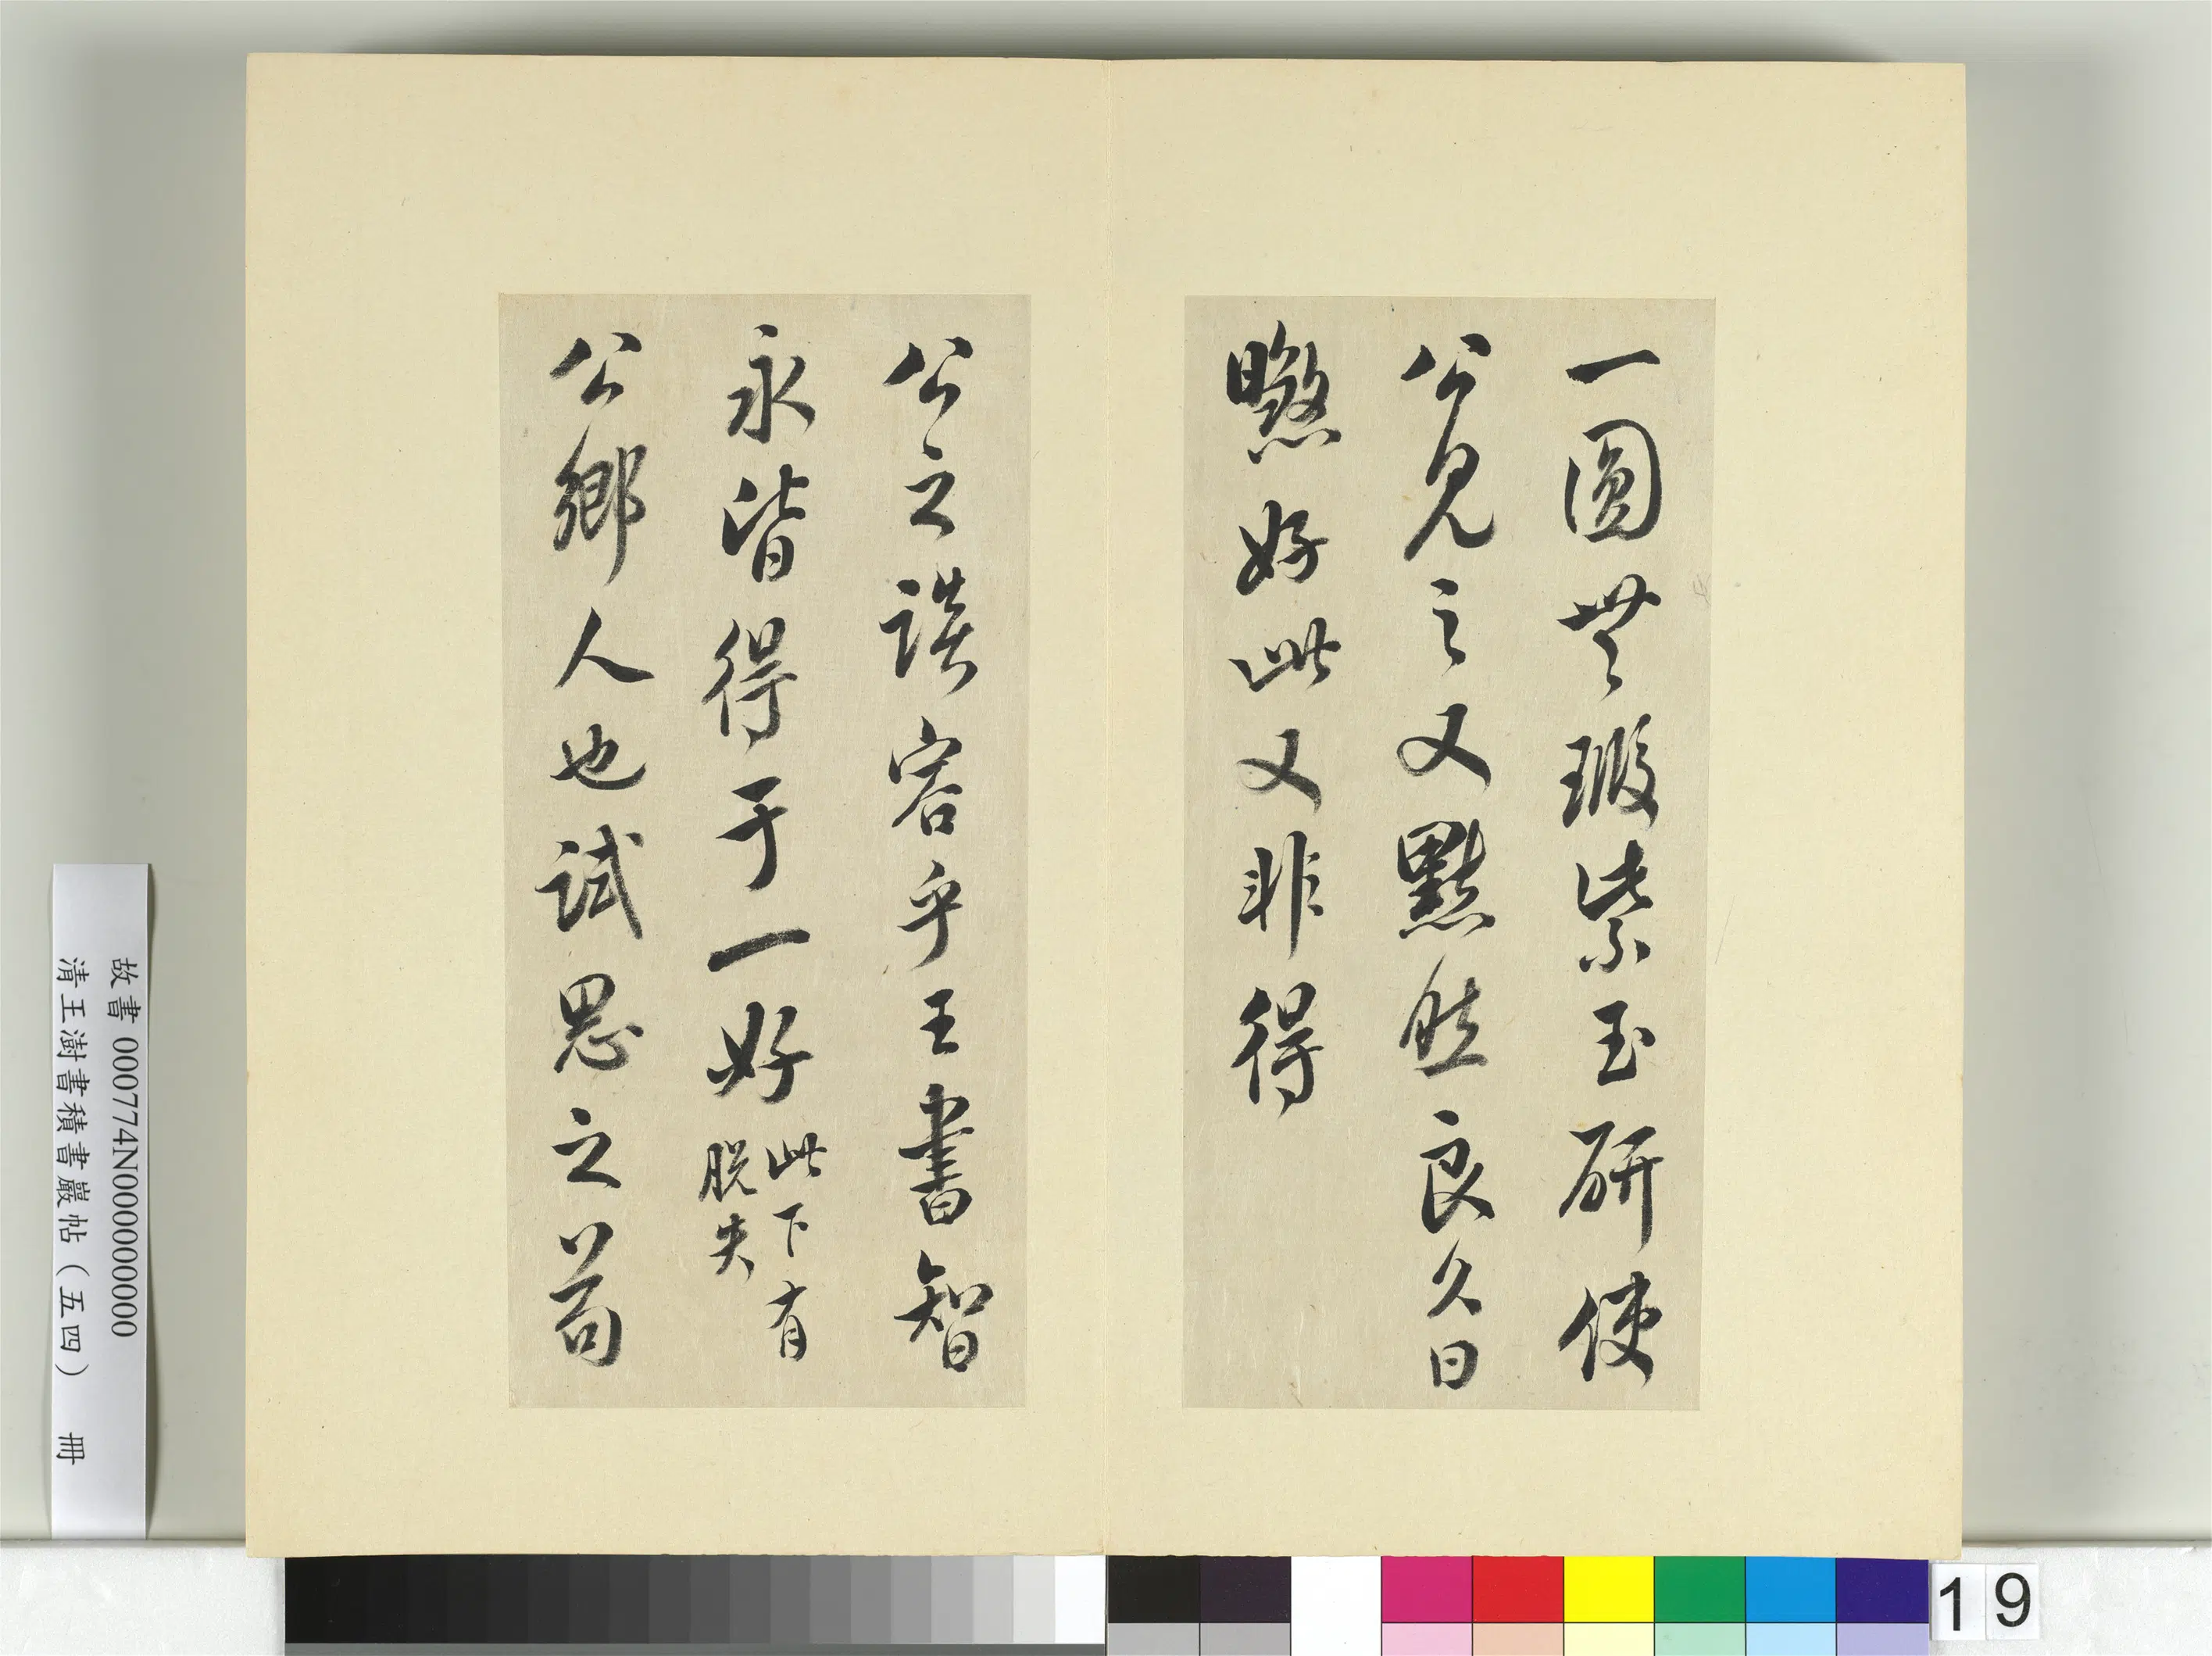 一圓無瑕紫玉研使
公見之又點然良久曰
憨好此又非得
公之誤容乎王書智
永皆得于一好此下有
脫失
公鄉人也試思之芾
故書 000774N000000000
清王澍書積書巖帖（五四） 冊
19